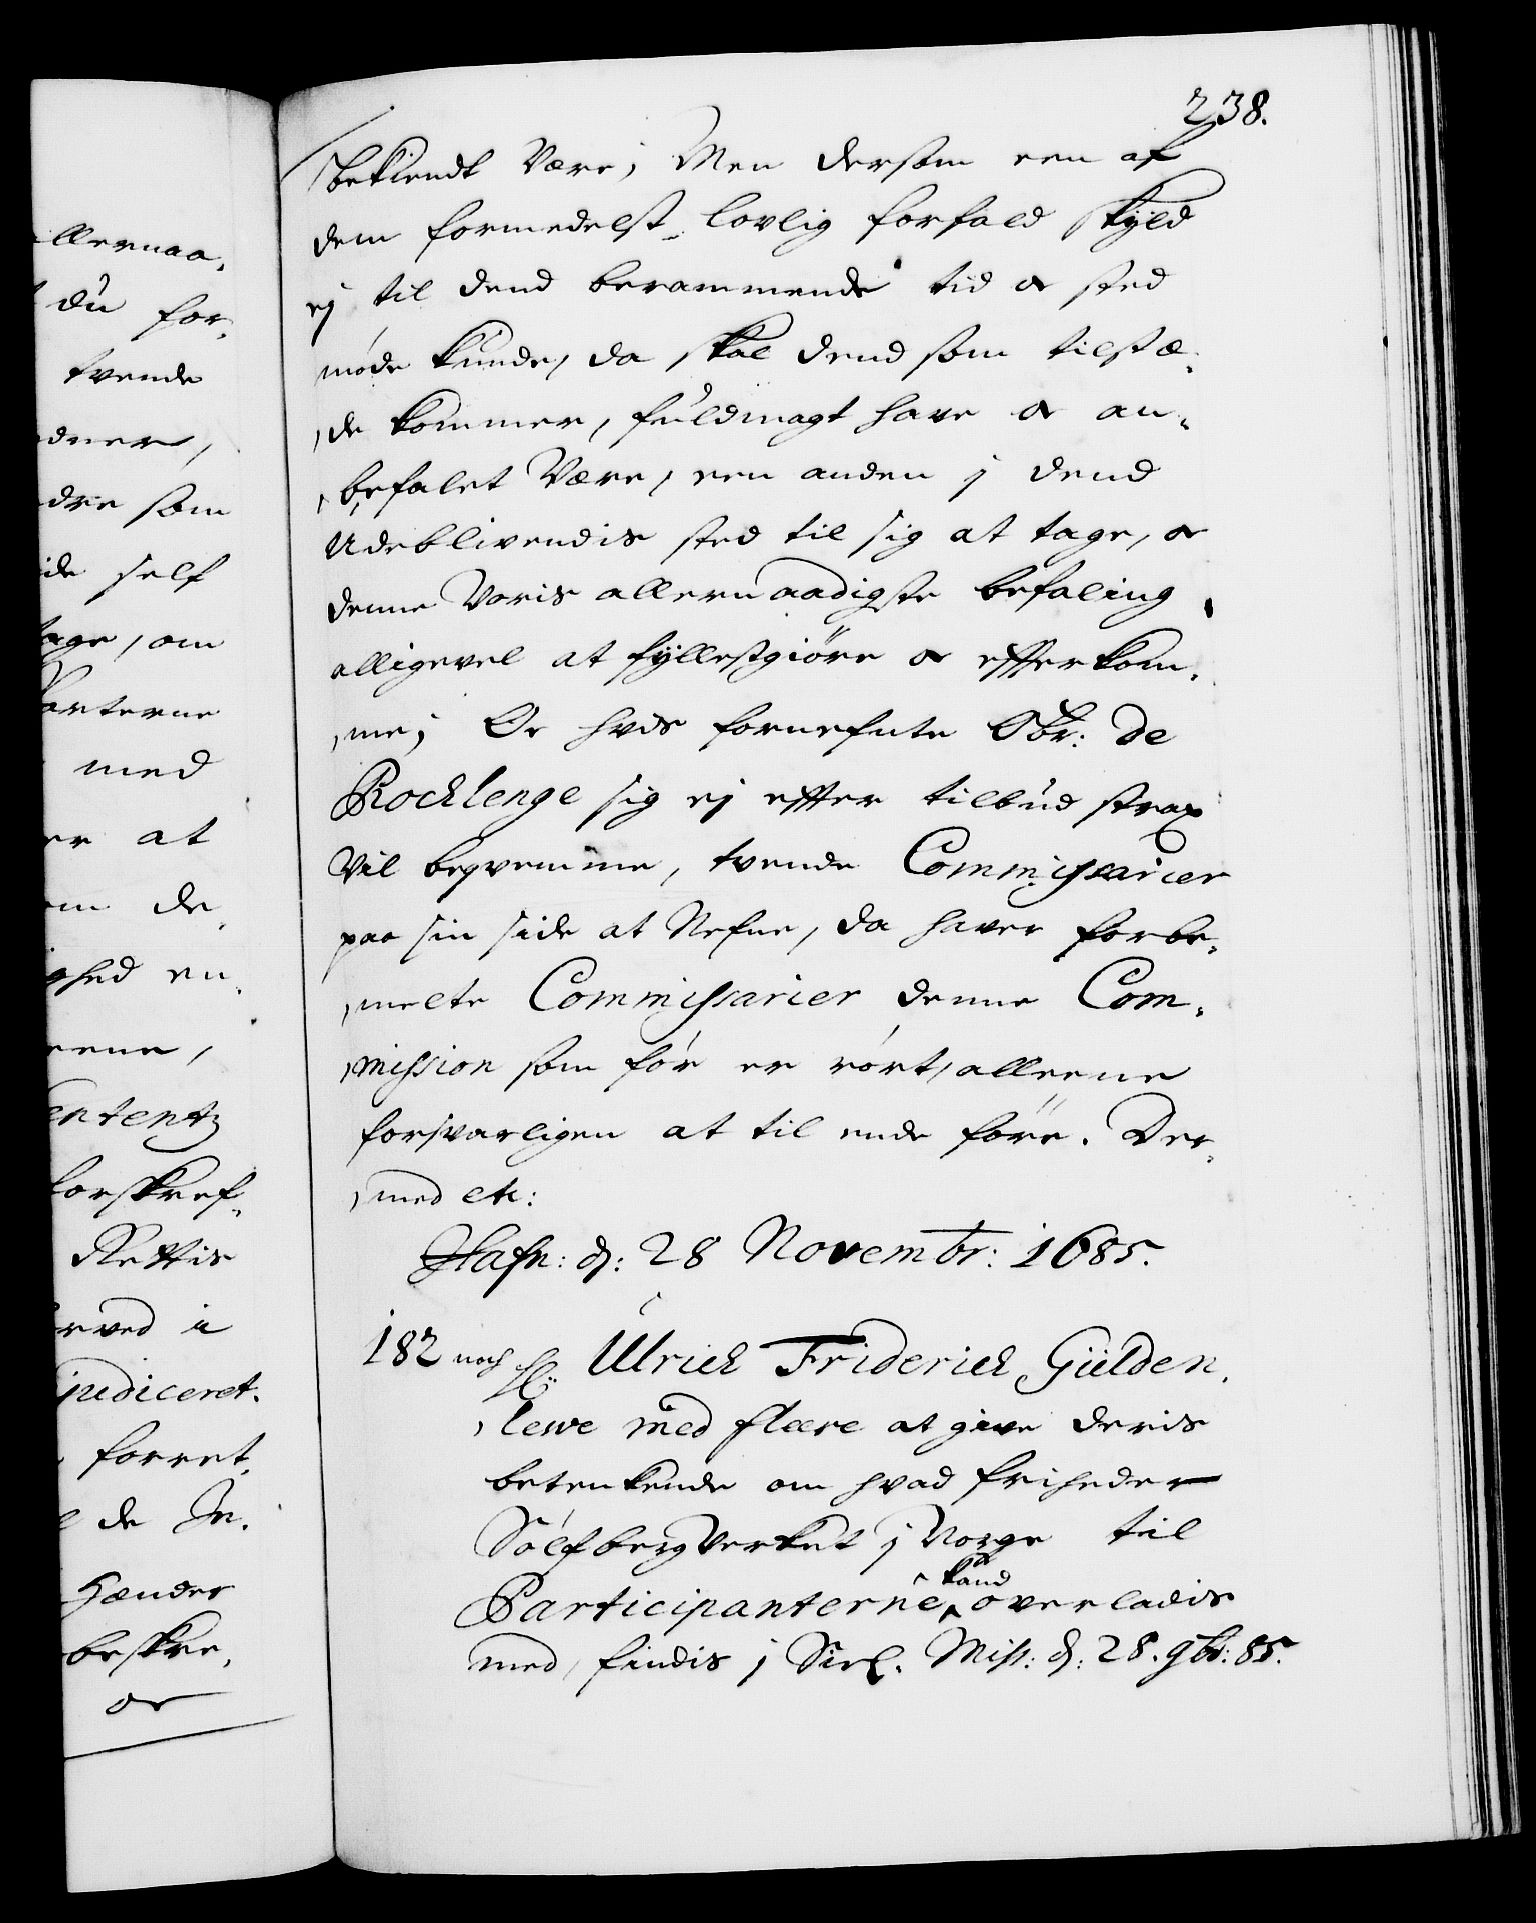 238.
bekiendt Være; Men dersom een af
dem formedelst lovlig forfald skyld
ej til dend berammende tid oc sted
møde kunde, da skal dend som tilstæ-
de kommer, fuldmagt have oc an-
befalet Være, een anden i dend
Udeblivendis sted til sig at tage, oc
denne Voris allernaadigste befaling
alligevel at fyllestgiöre oc efterkom-
me; Oc hvis fornefnte Obr: de
Rocklenge sig ej efter tilbud strax
Vil beqvemme, tvende Commissarier
paa sin side at Nefne, da haver forbe-
melte Commissarier denne Com-
mission som før er rørt, alleene
forsvarligen at til ende føre. Der-
med etc:
Hafn: d: 28 Novembr: 1685.
182 noch
Hr: Ulrich Friderich Gülden-
lewe med fleere at give deris
betenkende om hvad friheder
Sølfbergverket i Norge til
Participanterne kand overladis
med, findis i Siel. Miss: d: 28. 9br: 85.
llernaa-
du for-
tvende
dner,
dre som
ide self
tage, om
Parterne
med
er at
em de-
ghed en-
eene,
ententz
forskref-
Rettis
rved i
judiceret.
forret-
de In-
Hænder
beskre-
oc